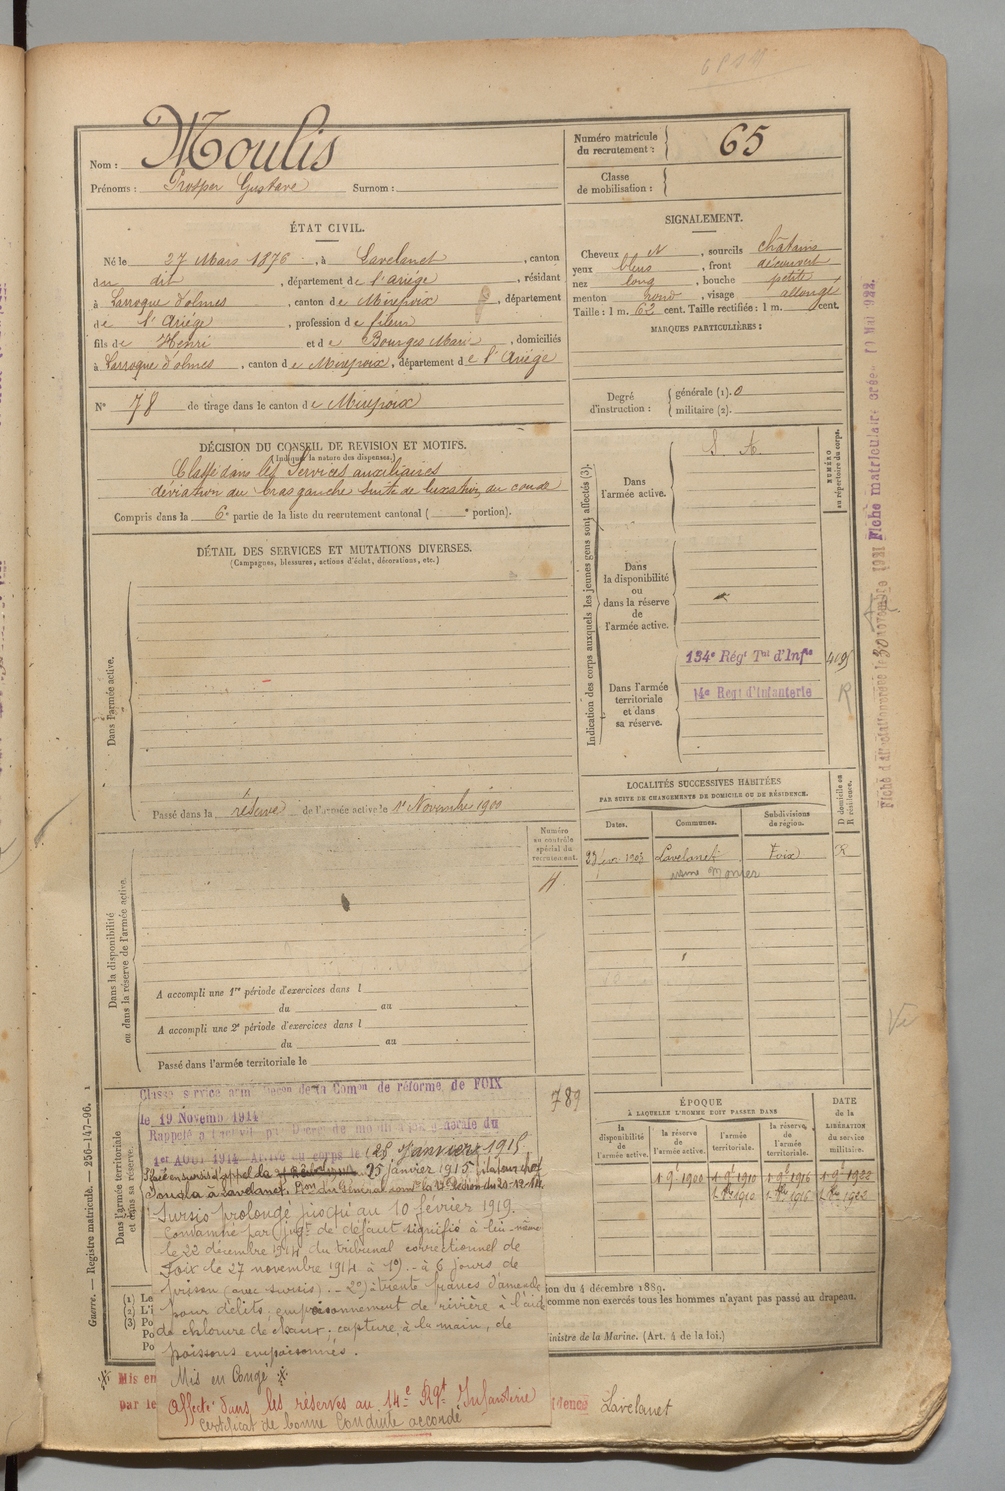 Nom : Moulis
Prénoms : Prosper Gustave Surnom :
Numéro matricule du recrutement : 65
Classe de mobilisation :
ÉTAT CIVIL.
Né le 27 Mars 1876, à Lavelanet, canton
du dit, département de l'Ariége, résidant
à Larroque d'olmes, canton de Mirepoix, département
de l'Ariége, profession de fileur
fils de Henri et de Bourges Marie, domiciliés
à Larroque d'olmes, canton de Mirepoix, département de l'Ariége
N° 78 de tirage dans le canton de Mirepoix
SIGNALEMENT.
Cheveux N, sourcils châtains
yeux bleus, front découvert
nez long, bouche petite
menton rond, visage allongé
Taille : 1 m. 62 cent. Taille rectifiée : 1 m. cent.
MARQUES PARTICULIÈRES :
Degré d'instruction : générale (1). 0
militaire (2).
DÉCISION DU CONSEIL DE REVISION ET MOTIFS.
(Indiquer la nature des dispenses.)
Classé dans les Services auxiliaires
déviation du bras gauche suite de luxation du coude
Compris dans la 6e partie de la liste du recrutement cantonal ( e portion).
DÉTAIL DES SERVICES ET MUTATIONS DIVERSES.
(Campagnes, blessures, actions d'éclat, décorations, etc.)
Dans l'armée active.
Passé dans la réserve de l'armée active le 1er Novembre 1900
Indication des corps auxquels les jeunes gens sont affectés (3).
NUMÉRO au répertoire du corps.
Dans l'armée active.
S. A.
Dans la disponibilité ou dans la réserve de l'armée active.
Dans l'armée territoriale et dans sa réserve.
134e Régt Tal d'Infie
14e Regt d'Infanterie
R
LOCALITÉS SUCCESSIVES HABITÉES
PAR SUITE DE CHANGEMENTS DE DOMICILE OU DE RÉSIDENCE.
Dates. Communes. Subdivisions de région. D domicile ou R résidence.
1903 Lavelanet Foix R
Numéro au contrôle spécial du recrutement.
Dans la disponibilité ou dans la réserve de l'armée active.
A accompli une 1re période d'exercices dans l
du au
A accompli une 2e période d'exercices dans l
du au
Passé dans l'armée territoriale le
789
Dans l'armée territoriale et dans sa réserve.
Classé service armé Décon de la Comon de réforme de FOIX
le 19 Novemb 1914
Rappelé à l'activité par Décret de mobilisation générale du
1er Août 1914 Arrivé au corps le 25 Janvier 1915
Placé en sursis d'appel 25 Janvier 1915
à Lavelanet. 20-12-14.
Sursis prolongé jusqu'au 10 février 1919.
Condamné par jugt de défaut signifié à lui-même
le 22 décembre 1914, du tribunal correctionnel de
Foix le 27 novembre 1914 à 1°). - à 6 jours de
prison (avec sursis). - 2°) à trente francs d'amende
pour délits, empoisonnement de rivière à l'aide
de chlorure de chaux ; capture, à la main, de
poissons empoisonnés.
Mis en Congé
Affecté dans les réserves au 14e Rgt Infanterie
Certificat de bonne Conduite accordé
ÉPOQUE
À LAQUELLE L'HOMME DOIT PASSER DANS
la disponibilité de l'armée active. la réserve de l'armée active. l'armée territoriale. la réserve de l'armée territoriale.
DATE de la LIBÉRATION du service militaire.
1 9bre 1900 1 9bre 1910 1 9bre 1916 1 9bre 1922
(1) Le
(2) L'i
(3) Po
Po
Po
ion du 4 décembre 1889.
comme non exercés tous les hommes n'ayant pas passé au drapeau.
inistre de la Marine. (Art. 4 de la loi.)
Mis en
par le
Lavelanet
Guerre. — Registre matricule. — 256-147-96. 1
30 novembre 1921 Fiche matriculaire créée 1922.